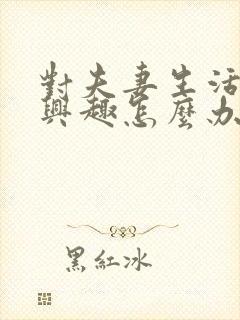 對夫妻生活
興趣怎麼辦
黑紅冰